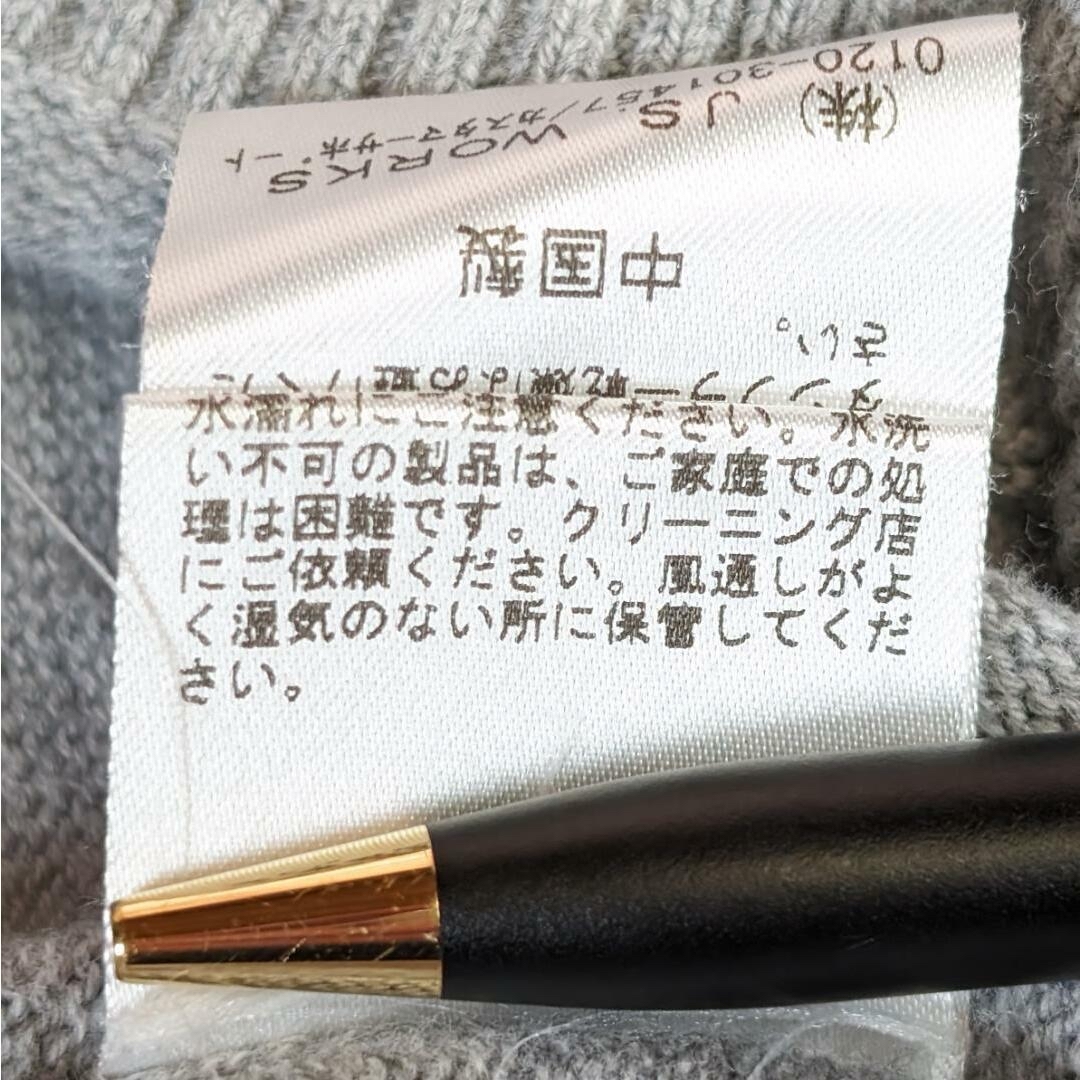 水濡れにご注意ください。水洗
い不可の製品は、ご家庭での処
理は困難です。クリーニング店
にご依頼ください。風通しがよ
く湿気のない所に保管してくだ
さい。
さい。
中国製
(株) JS WORKS
0120-301457/カスタマーサポート